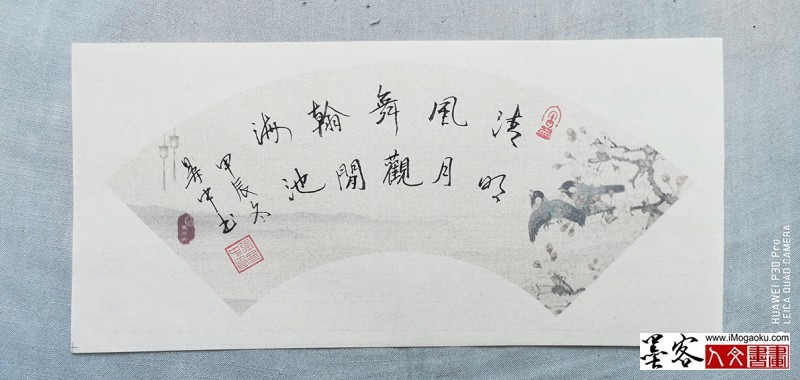 清風舞翰海
明月觀閒池
甲辰冬
中书
HUAWEI P30 Pro
LEICA QUAD CAMERA
墨客
人文書畫
www.iMogaoku.com